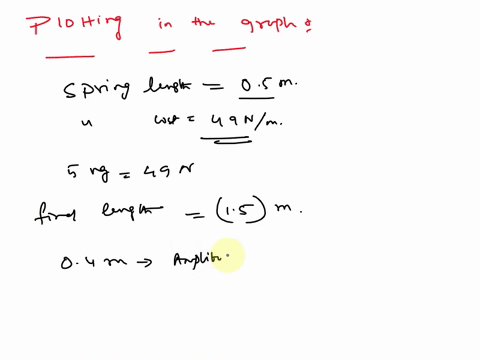 Plotting in the graph:
Spring length = 0.5 m.
" const = 49 N/m.
5 kg = 49 N
final length = (1.5) m.
0.4 m → Amplitu